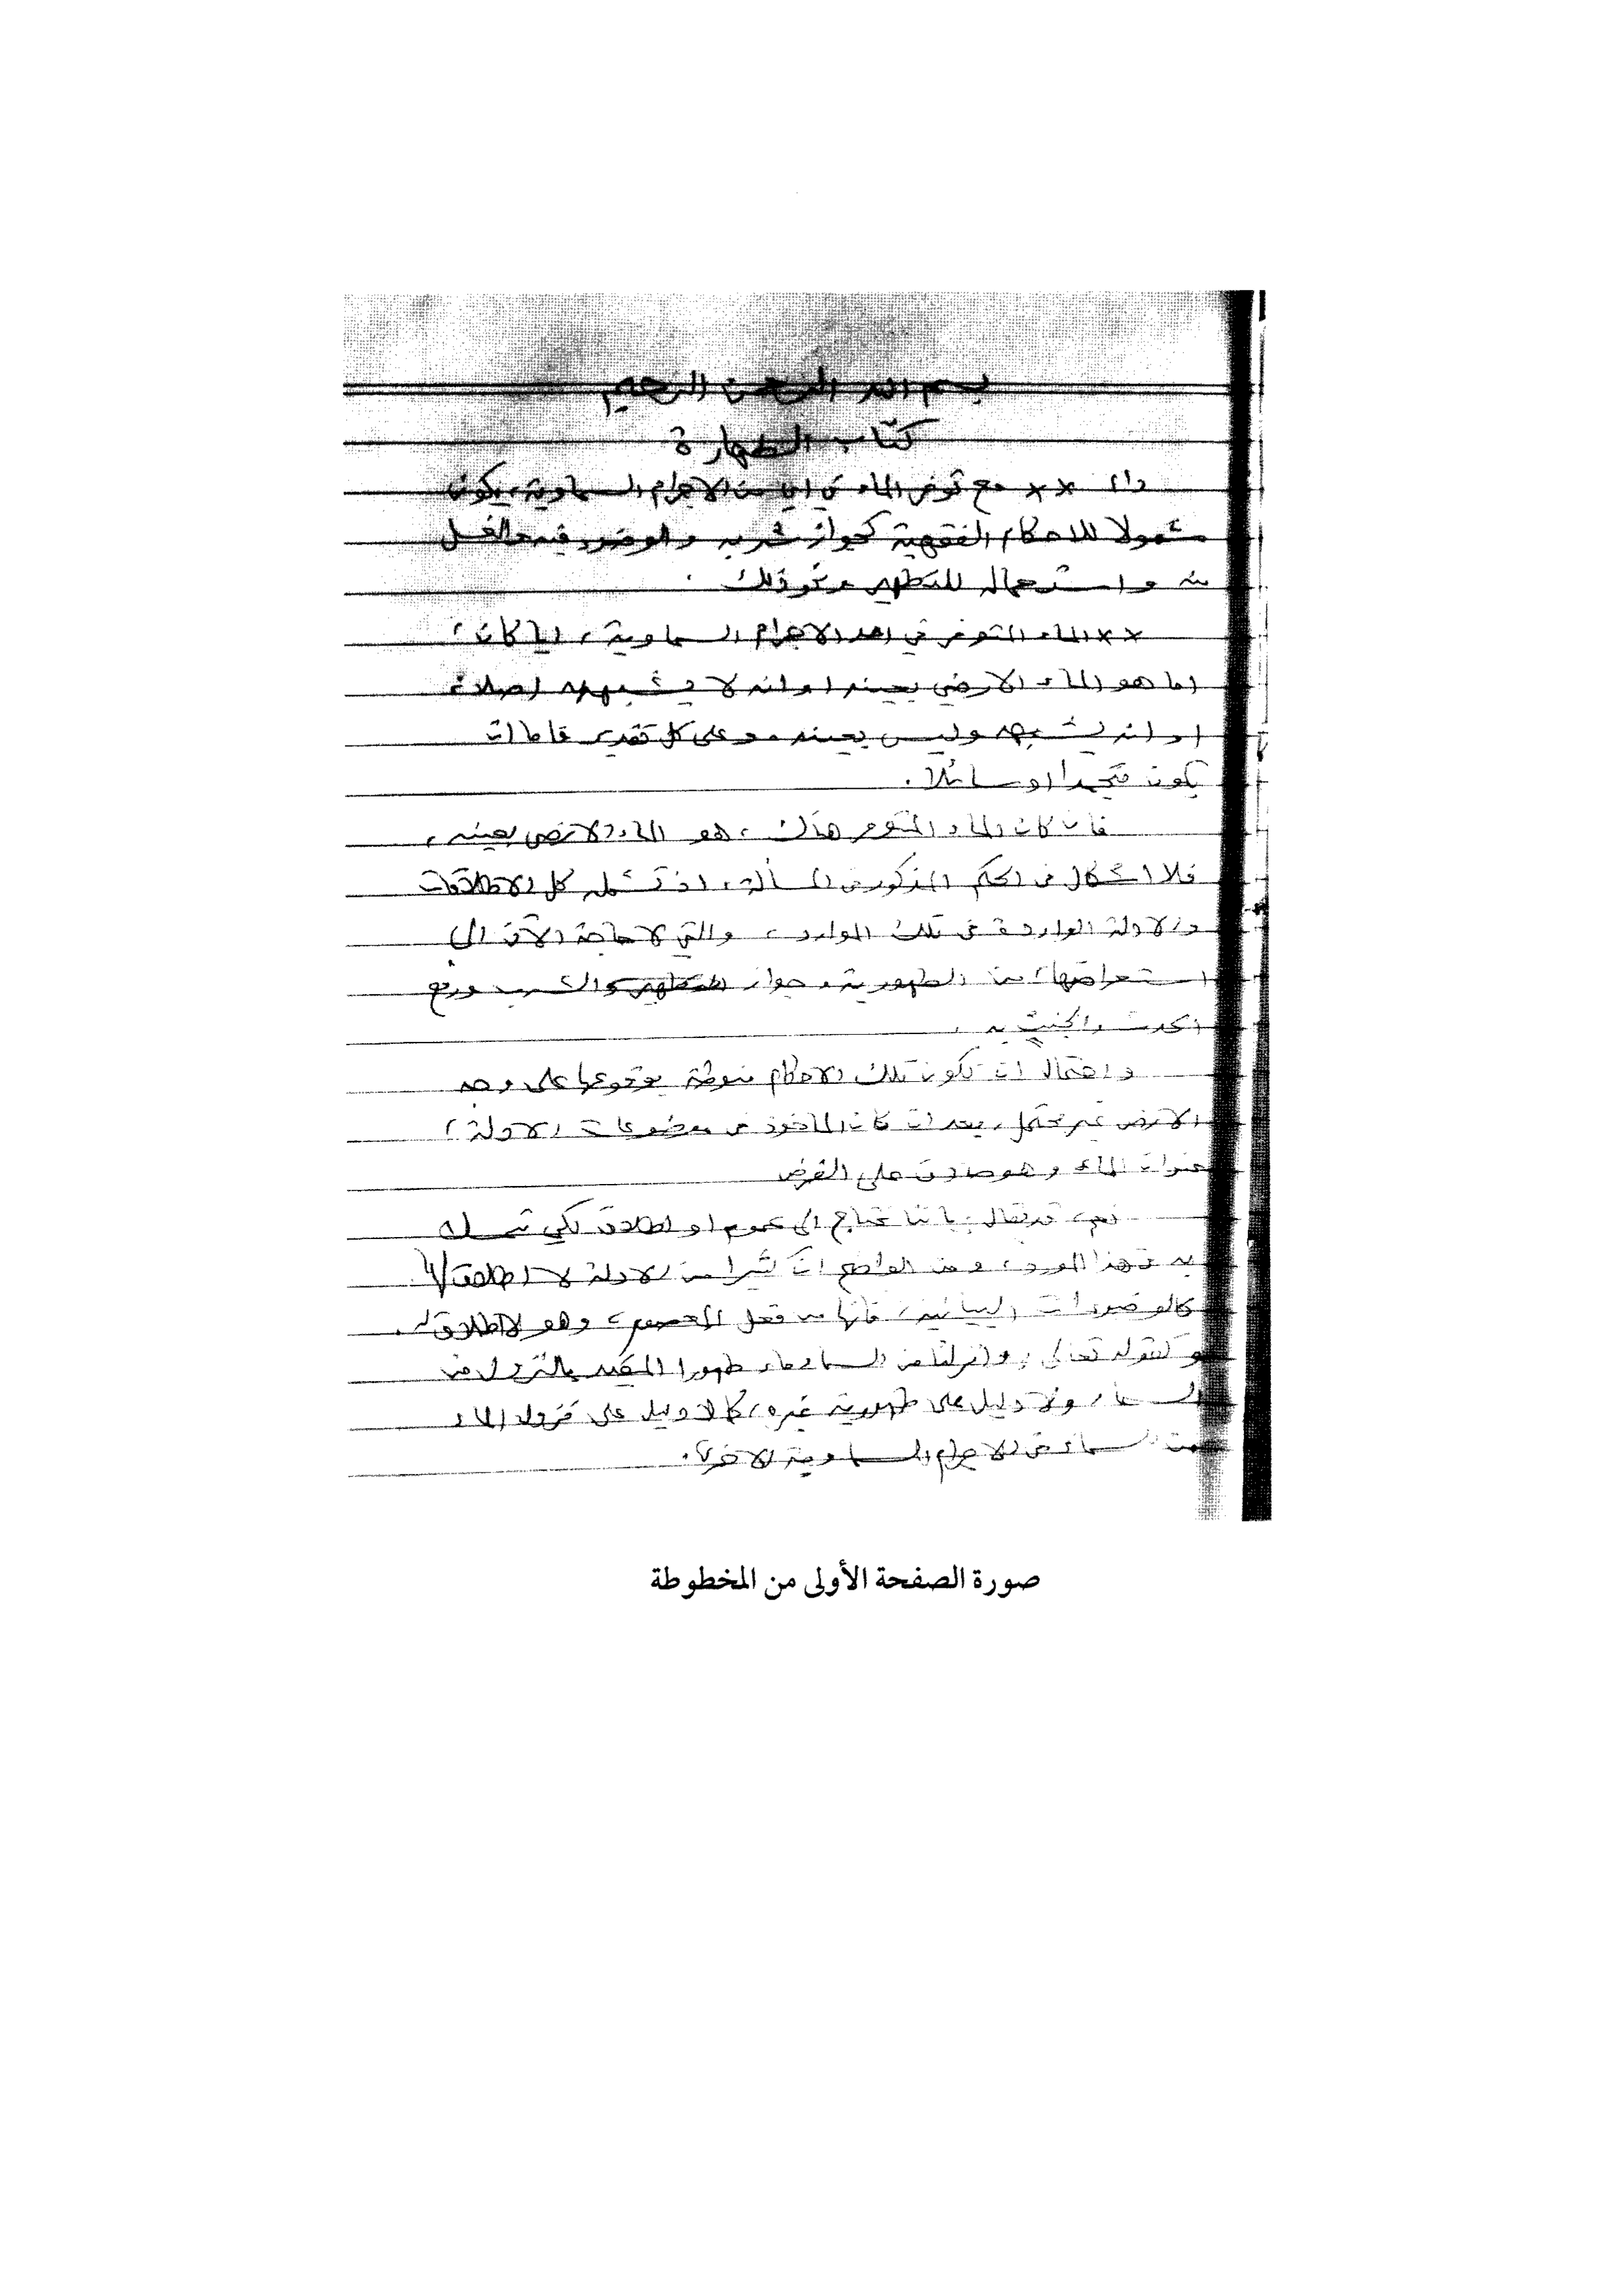 بسم الله الرحمن الرحيم
كتاب الطهارة
(١) ×× مع توفر الماء في اي من الاجرام السماوية، يكون
مشمولا للاحكام الفقهية كجواز شربه والوضوء فيه والغسل
منه واستعماله للتطهير ونحو ذلك .
×× الماء المتوفر في احد الاجرام السماوية ، ايا كان ؛
اما هو الماء الارضي بعينه او انه لا يشبهه اصلا،
او انه يشبهه وليس بعينه . وعلى كل تقدير فاما ان
يكون متجمدا او سائلا .
فان كان الماء المتوفر هناك ، هو الماء الارضي بعينه ،
فلا اشكال في الحكم المذكور في المسألة ، اذ تشمله كل الاطلاقات
والادلة الواردة في تلك الموارد ، والتي لا حاجة الآن الى
استعراضها ؛ من الطهورية وجواز الشرب ورفع
الحدث والخبث به .
واحتمال ان تكون تلك الاحكام منوطة بوقوعها على وجه
الارض غير محتمل ، بعد ان كان المأخوذ في موضوعات الادلة ؛
عنوان الماء وهو صادق على الفرض
نعم ، قد يقال : باننا نحتاج الى عموم او اطلاق لكي نتمسك
به في هذا المورد ، ومن الواضح ان كثيرا من الادلة لا اطلاق لها
كالوضوءات البيانية ، فانها من فعل المعصوم ، وهو لا اطلاق له .
وكقوله تعالى : وانزلنا من السماء ماء طهورا المقيد بالنزول من
السماء ولا دليل على طهورية غيره ، كما لا دليل على نزول الماء
من السماء في الاجرام السماوية الاخرى .
صورة الصفحة الأولى من المخطوطة